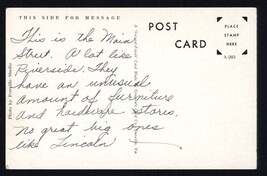 THIS SIDE FOR MESSAGE
POST CARD
PLACE
STAMP
HERE
This is the Main
Street. A lot like
Riverside. They
have an unusual
amount of furniture
and hardware stores.
No great big ones
like Lincoln